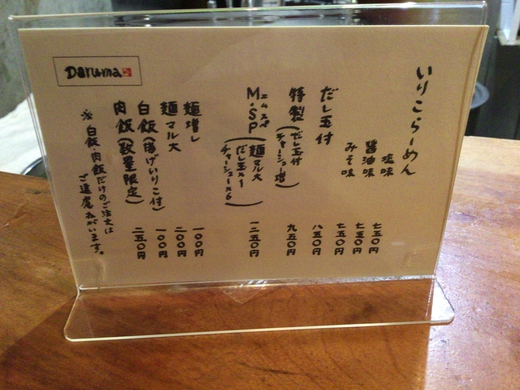 いりこらーめん
塩味 七五〇円
醤油味 七五〇円
みそ味 七五〇円
だし玉付 八五〇円
特製(だし玉付 チャーシュー増) 九五〇円
M・SP(麺マル大 だし玉入り チャーシュー×6) 一二五〇円
麺増し 一〇〇円
麺マル大 二〇〇円
白飯(揚げいりこ付) 一〇〇円
肉飯(数量限定) 二五〇円
※白飯、肉飯だけのご注文は
ご遠慮ねがいます。
Daruma